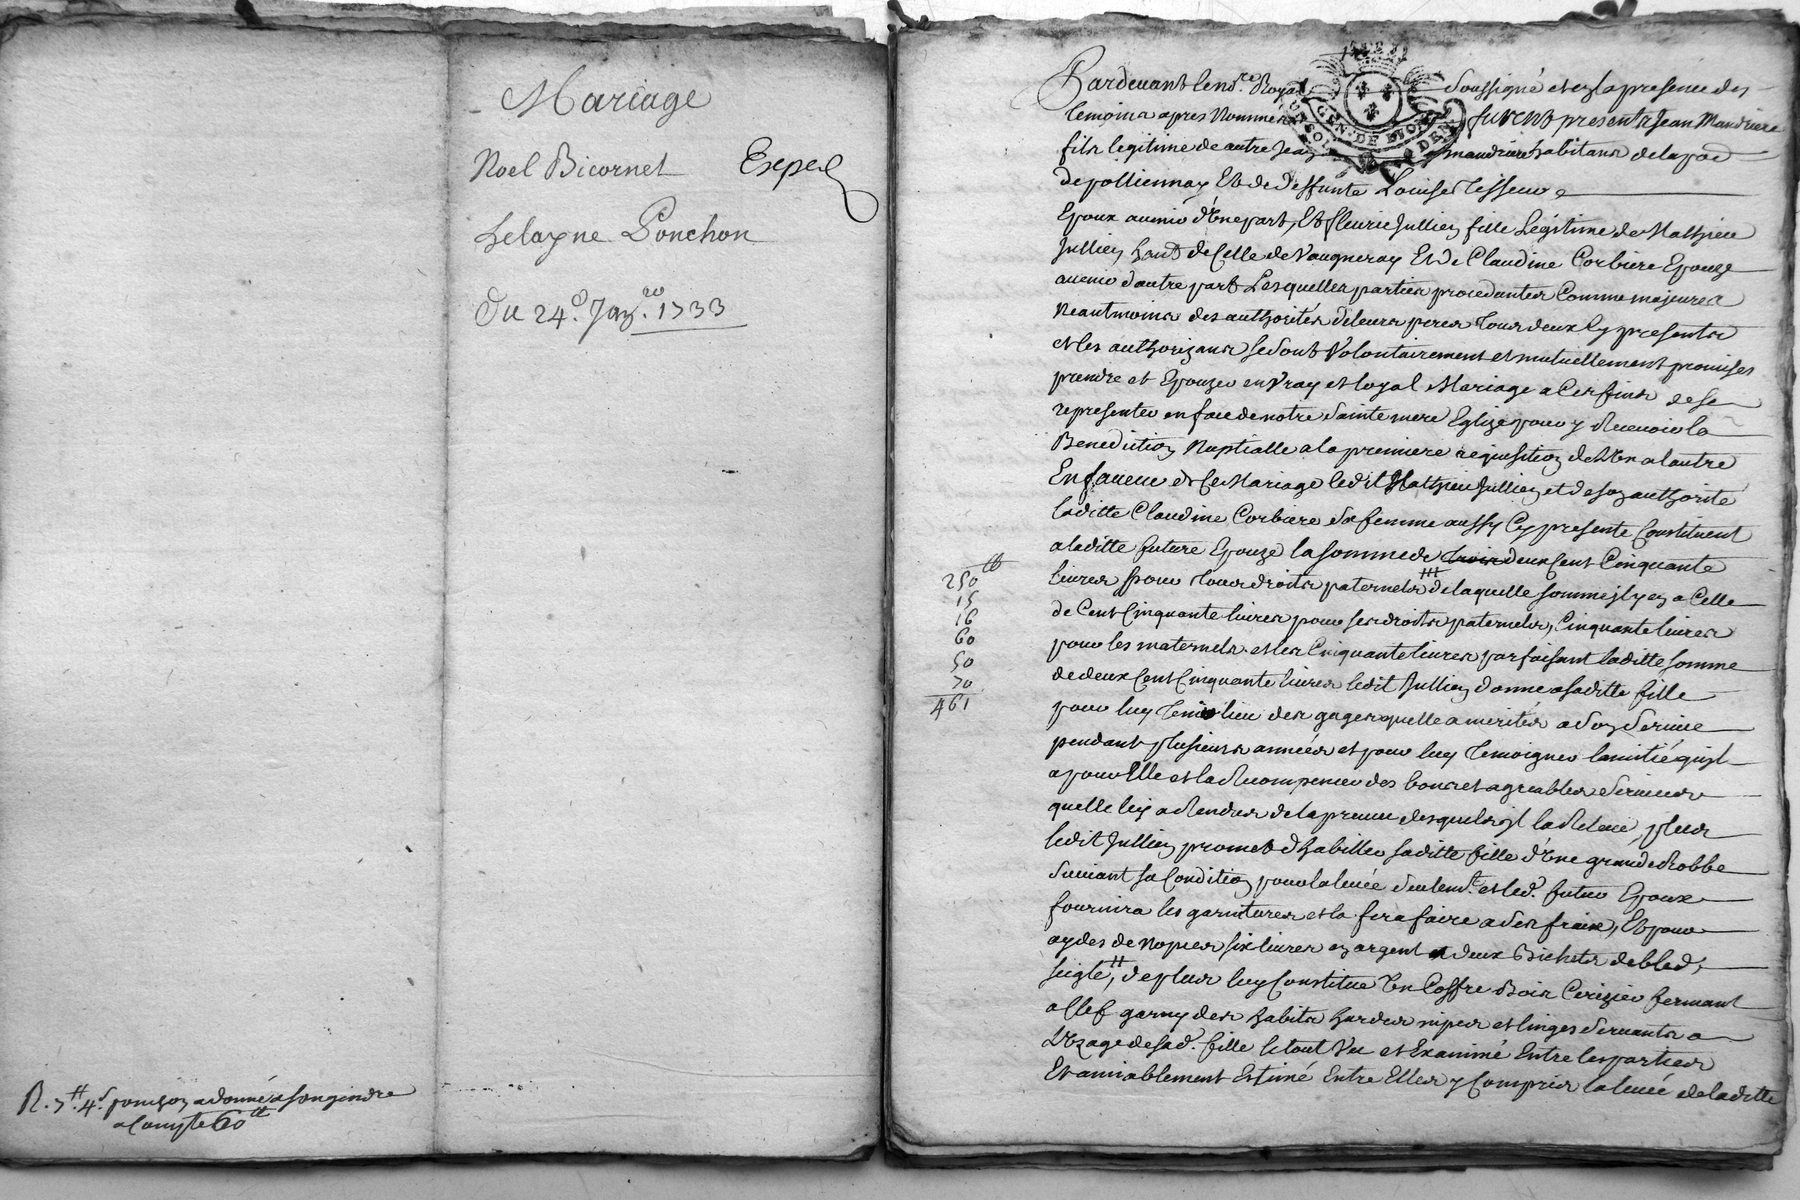 Mariage
Noel Bicornet Exped
Helayne Ponchon
Du 24e. Janv.ro 1733
R. 7tt. 4s. a donné a son gendre
a Compte 60tt
Pardevant le no.re Royal soussigné et en la presence des
temoins apres Nommés furent presents Jean Mandiere
fils legitime de autre Jean mandiere habitans de la par
de pollionnay Et de deffunte Louise Tisseur
Epoux avenir d'Vne part, Et fleurie Jullien fille Légitime de Mathieu
Jullien habt de Celle de Vaugneray Et de Claudine Corbiere Epouze
avenir d'autre part Lesquelles parties procedantes Comme majeures
Neantmoins des authorités de leurs peres Tous deux Cy presents
et les authorizans se sont Volontairement et mutuellement promises
prendre et Epouzer en Vray et loyal Mariage a Ces fins de se
representer en face de notre Sainte mere Eglize pour y Recevoir la
Benediction Nuptialle a la premiere requisition de L'Vn a lautre
En faveur de Ce Mariage ledit Mathieu Jullien et de son authorité
laditte Claudine Corbiere sa femme aussy Cy presente Constituent
a laditte future Epouze la somme de trois deux Cent Cinquante
livres pour tous droits paternels de laquelle somme jl y en a Celle
de Cent Cinquante livres pour ses droits paternels, Cinquante livres
pour les maternels et les Cinquante livres parfaisant laditte somme
de deux Cent Cinquante livres ledit Jullien donne a saditte fille
pour luy tenir lieu des gages quelle a merités a son Service
pendant plusieurs années et pour luy temoigner lamitié qu'jl
a pour Elle et la Recompencer des bons et agreables Services
quelle luy a Rendus de la preuve desquels jl la Releve, plus
ledit Jullien promet d'habiller saditte fille d'Vne grande Robbe
Suivant sa Condition pour la levée Seulemt. et led. futur Epoux
fournira les garnitures et la fera faire a ses fraix, Et pour
aydes de Nopces six livres en argent deux Bichets de bled
seigle, de plus luy Constitue Vn Coffre Bois Cerizier fermant
a Clef garny des habits hardes nipes et linges Servants a
L'Vzage de sad. fille le tout Vu et Examiné Entre les parties
Et amiablement Estimé Entre Elles y Compris la levée de laditte
250tt
15
16
60
50
70
461